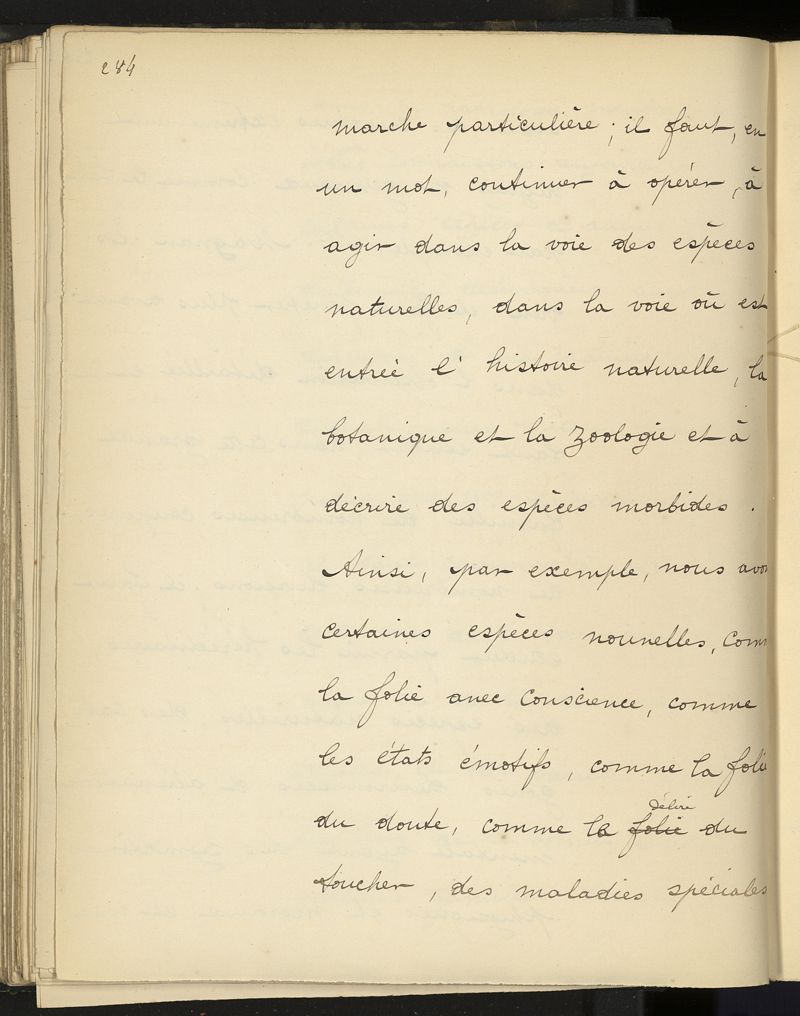 284
marche particulière ; il faut, en
un mot, continuer à opérer, à
agir dans la voie des espèces
naturelles, dans la voie où est
entrée l'histoire naturelle, la
botanique et la zoologie et à
décrire des espèces morbides.
Ainsi, par exemple, nous avon
certaines espèces nouvelles, comm
la folie avec conscience, comme
les états émotifs, comme la folie
délire
du doute, comme le folie du
toucher, des maladies spéciales